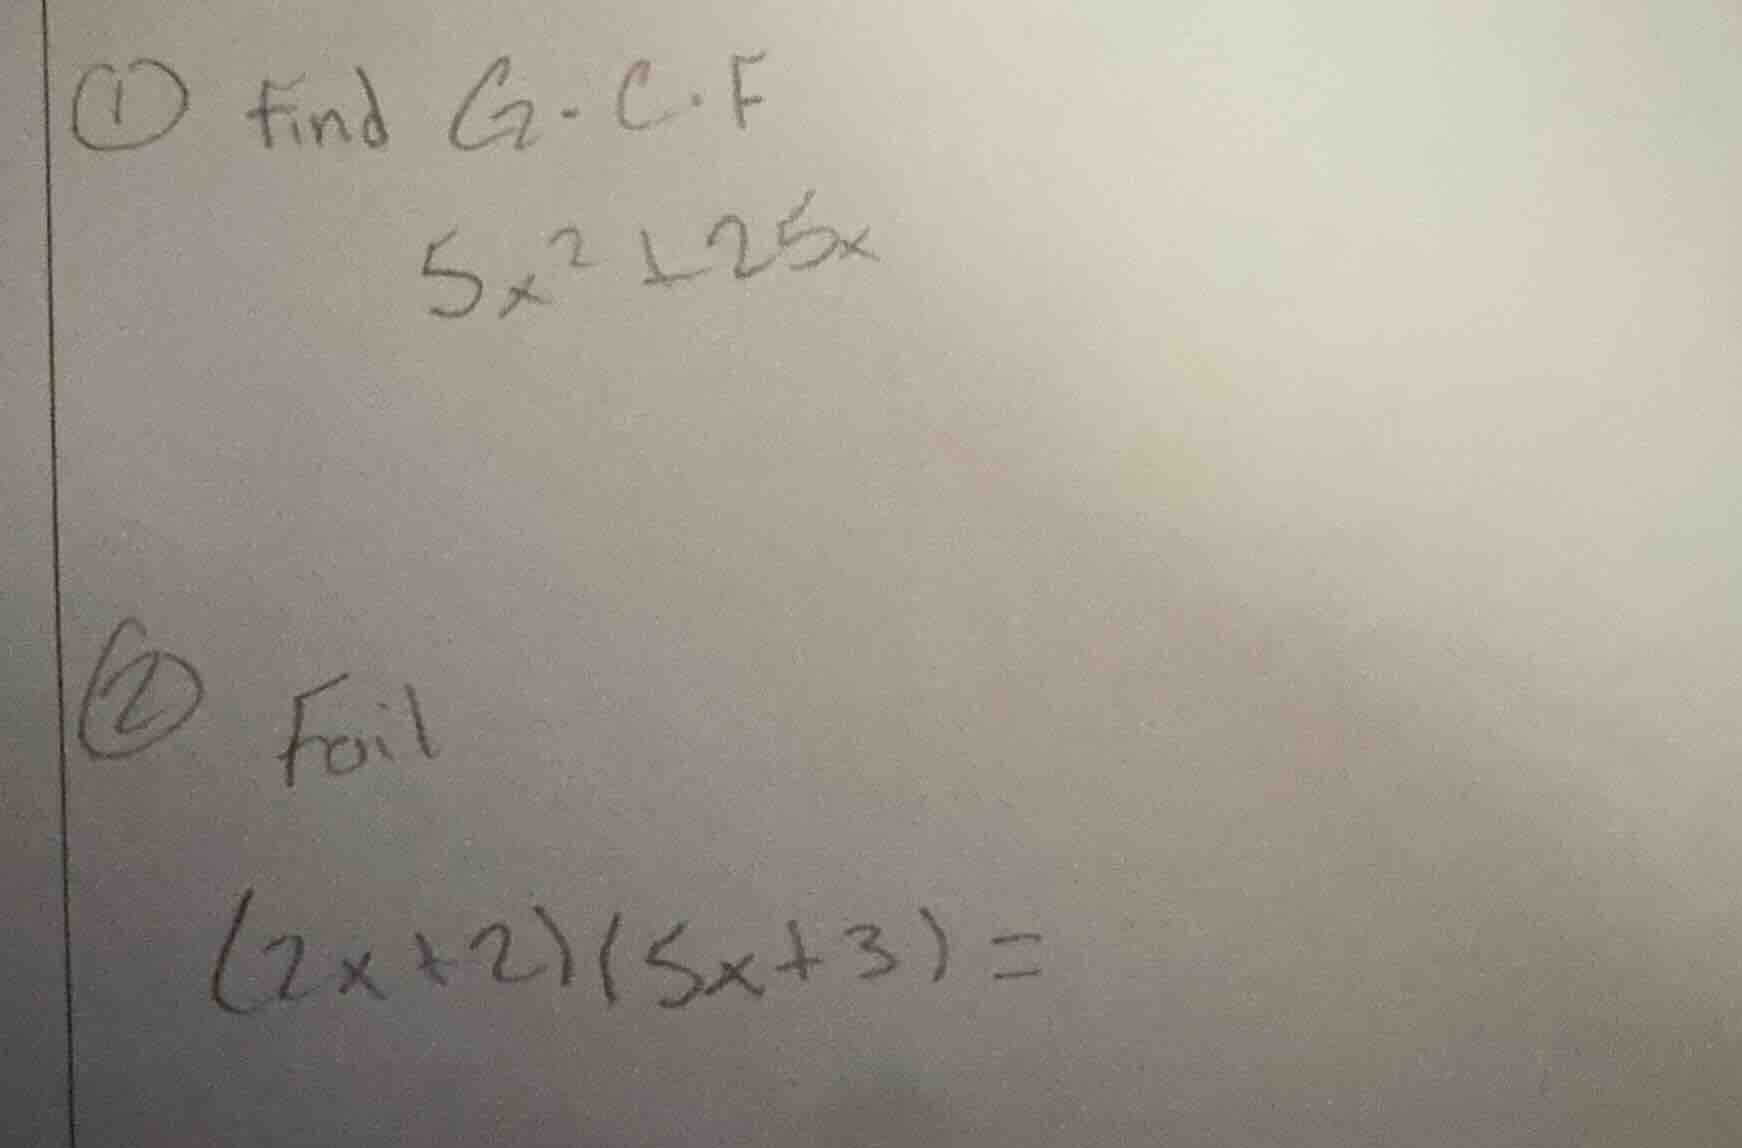 ① Find G.C.F
5x² + 25x
② Foil
(2x+2)(5x+3) =